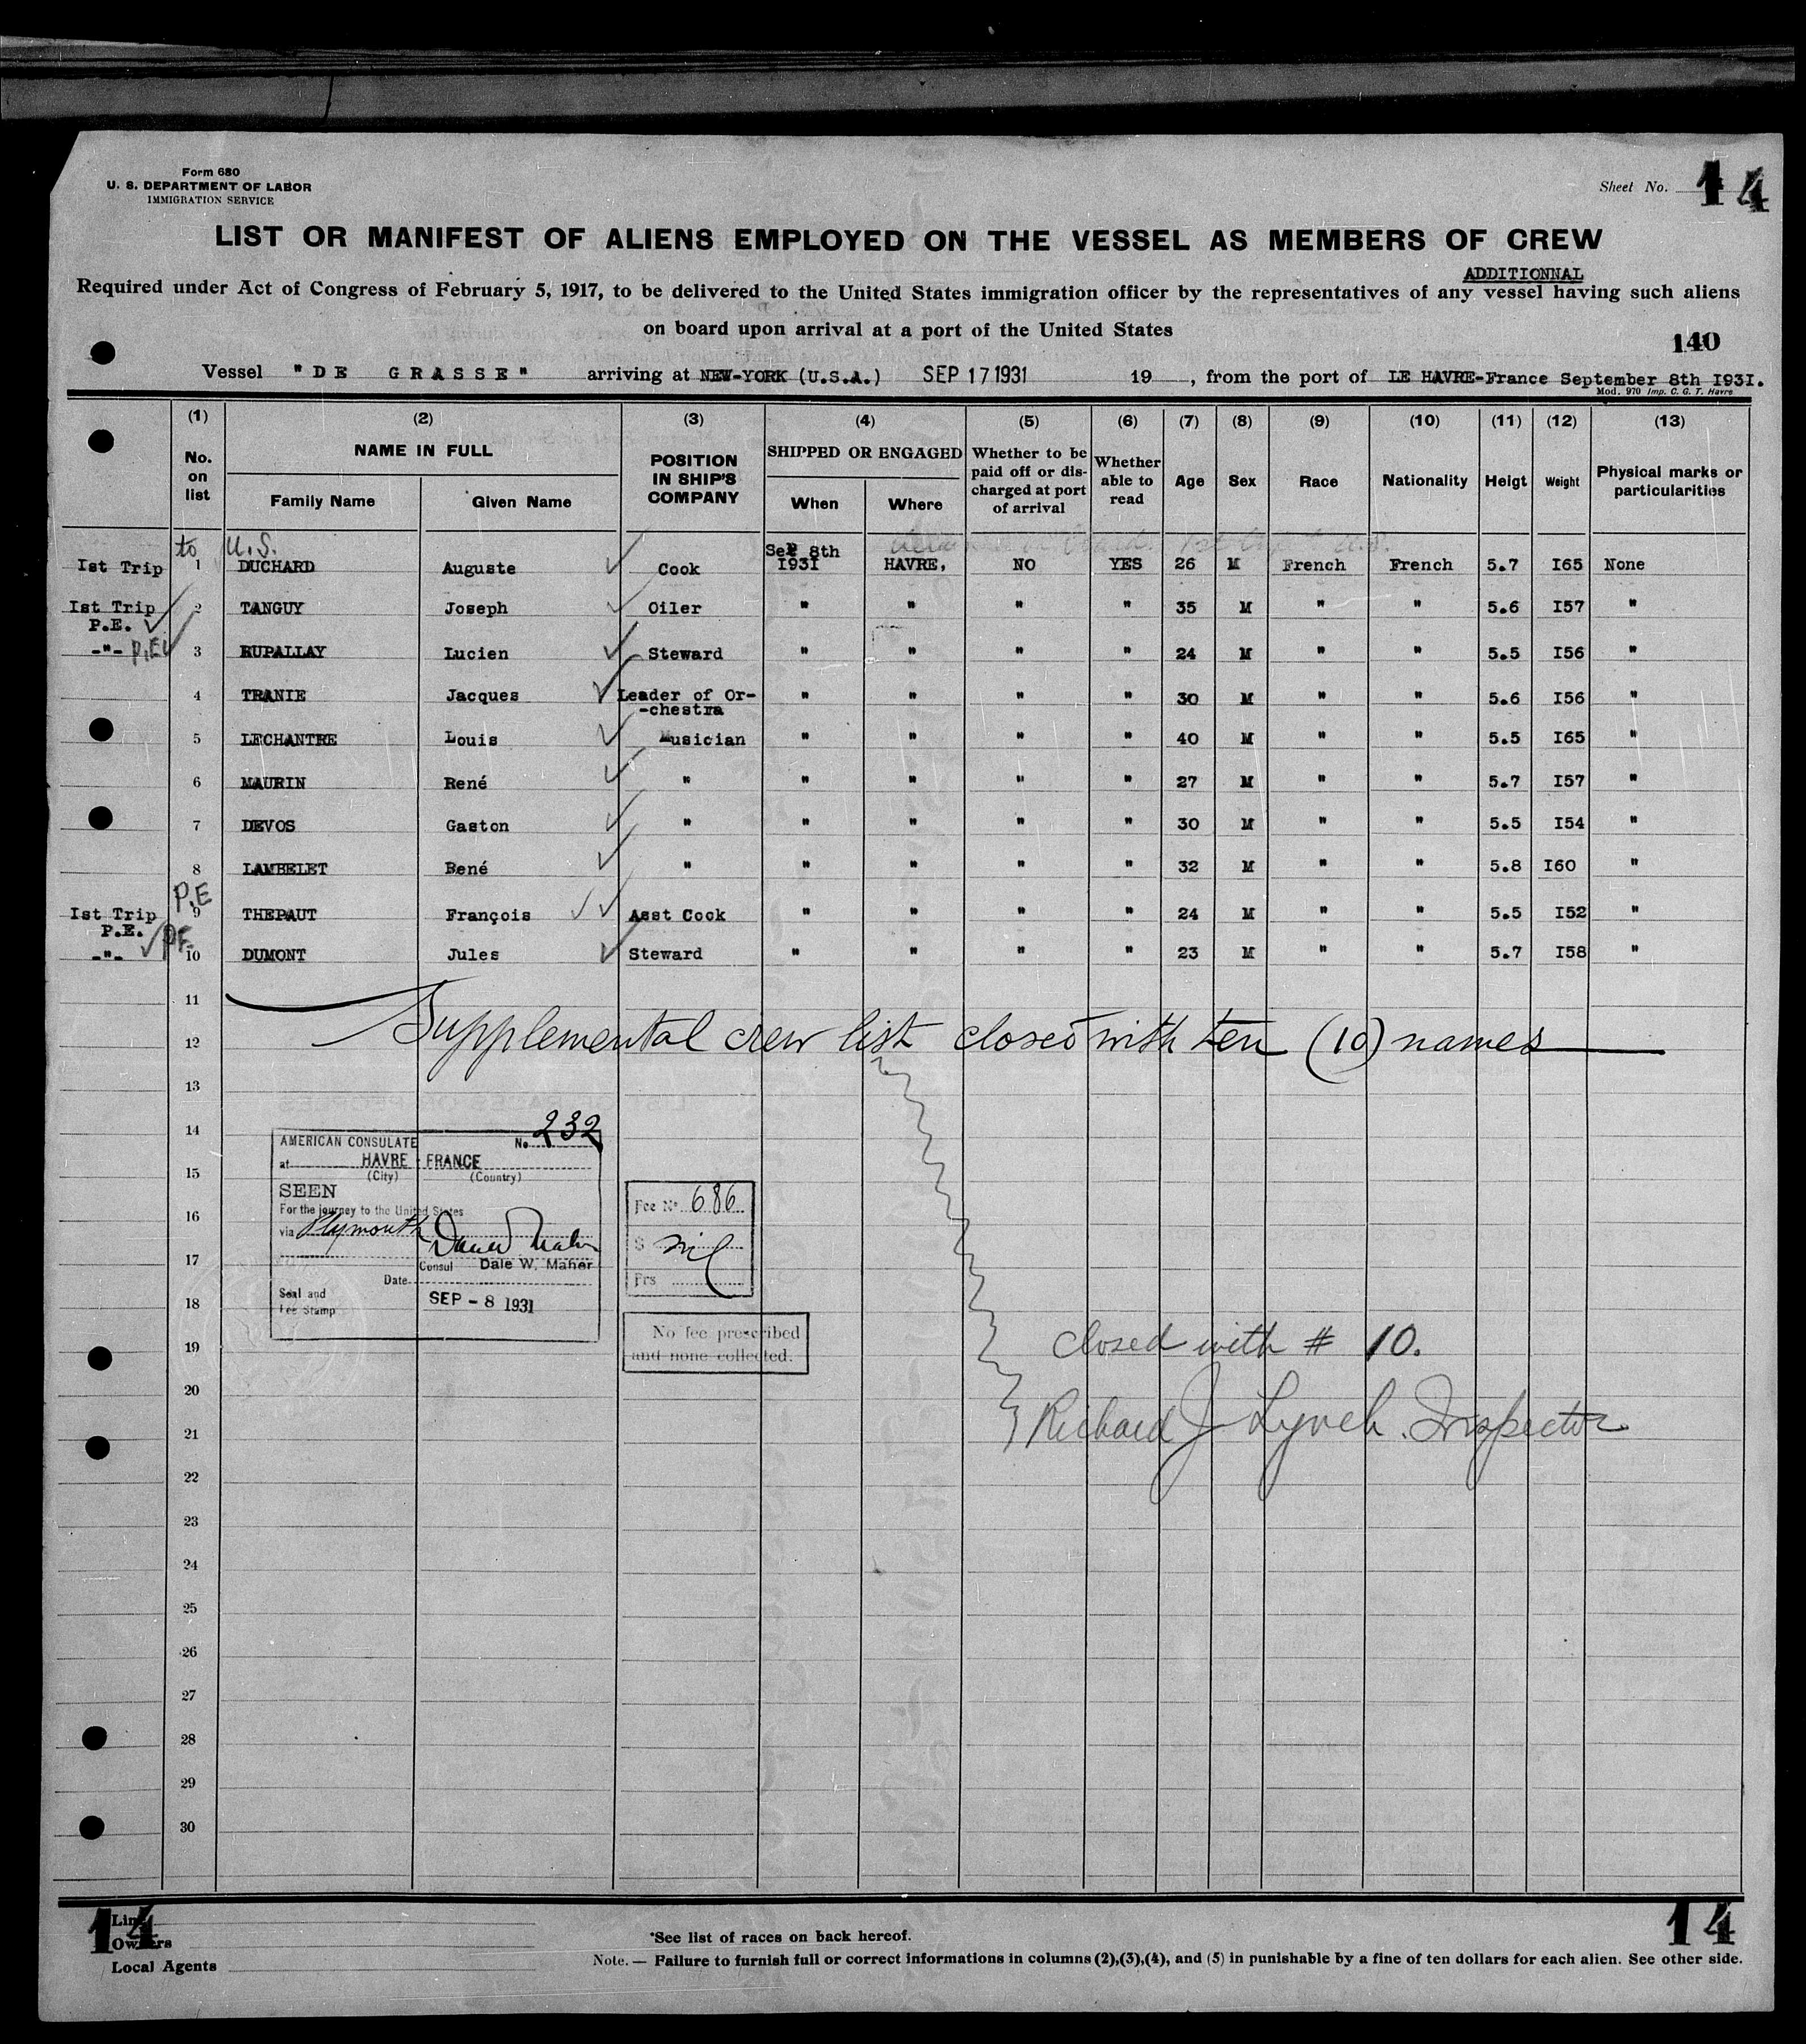 Form 680
U. S. DEPARTMENT OF LABOR
IMMIGRATION SERVICE
Sheet No. 14
LIST OR MANIFEST OF ALIENS EMPLOYED ON THE VESSEL AS MEMBERS OF CREW
ADDITIONNAL
Required under Act of Congress of February 5, 1917, to be delivered to the United States immigration officer by the representatives of any vessel having such aliens
on board upon arrival at a port of the United States
140
Vessel "DE GRASSE" arriving at NEW-YORK (U.S.A.) SEP 17 1931 19 , from the port of LE HAVRE-France September 8th I93I.
Mod. 970 Imp. C. G. T. Havre
(1) (2) (3) (4) (5) (6) (7) (8) (9) (10) (11) (12) (13)
No. on list
NAME IN FULL
Family Name Given Name
POSITION IN SHIP'S COMPANY
SHIPPED OR ENGAGED
When Where
Whether to be paid off or discharged at port of arrival
Whether able to read
Age Sex Race Nationality Heigt Weight
Physical marks or particularities
to U.S.
Ist Trip 1 DUCHARD Auguste Cook Sep 8th I93I HAVRE, NO YES 26 M French French 5.7 I65 None
Ist Trip P.E. 2 TANGUY Joseph Oiler " " " " 35 M " " 5.6 I57 "
-"- P.E. 3 RUPALLAY Lucien Steward " " " " 24 M " " 5.5 I56 "
4 TRANIE Jacques Leader of Or--chestra " " " " 30 M " " 5.6 I56 "
5 LECHANTRE Louis Musician " " " " 40 M " " 5.5 I65 "
6 MAURIN René " " " " " 27 M " " 5.7 I57 "
7 DEVOS Gaston " " " " " 30 M " " 5.5 I54 "
8 LAMBELET René " " " " " 32 M " " 5.8 I60 "
P.E
Ist Trip P.E. 9 THEPAUT François Asst Cook " " " " 24 M " " 5.5 I52 "
-"- P.E. 10 DUMONT Jules Steward " " " " 23 M " " 5.7 I58 "
11
Supplemental crew list closed with ten (10) names
12
13
14
AMERICAN CONSULATE No. 232
at HAVRE - FRANCE
(City) (Country)
15
SEEN
For the journey to the United States
via Plymouth
16
Fee No 686
$ nil
Frs
17
Consul Dale W. Maher
Date
Seal and Fee Stamp
SEP - 8 1931
18
No fee prescribed
and none collected.
19
closed with # 10.
20
Richard J Lynch. Inspector
21
22
23
24
25
26
27
28
29
30
14
Line
Owners
Local Agents
*See list of races on back hereof.
14
Note. — Failure to furnish full or correct informations in columns (2),(3),(4), and (5) in punishable by a fine of ten dollars for each alien. See other side.